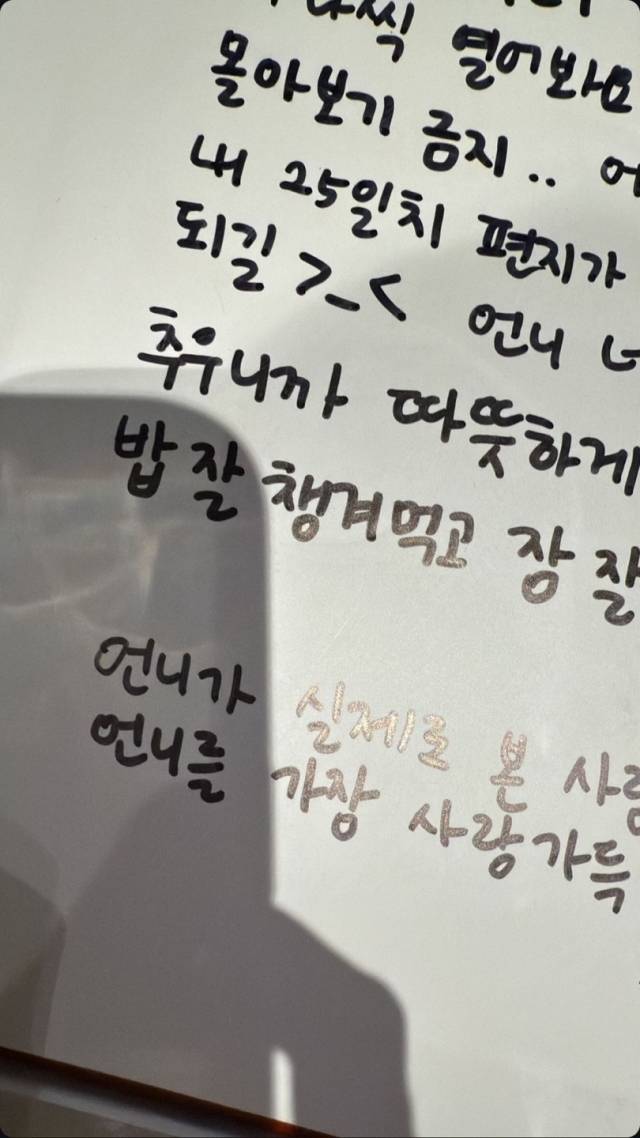 열어봐요
몰아보기 금지..
내 25일치 편지가
되길 >_< 언니
추우니까 따뜻하게
밥 잘 챙겨먹고 장 잘
언니가 실제로 본
언니를 가장 사랑가득